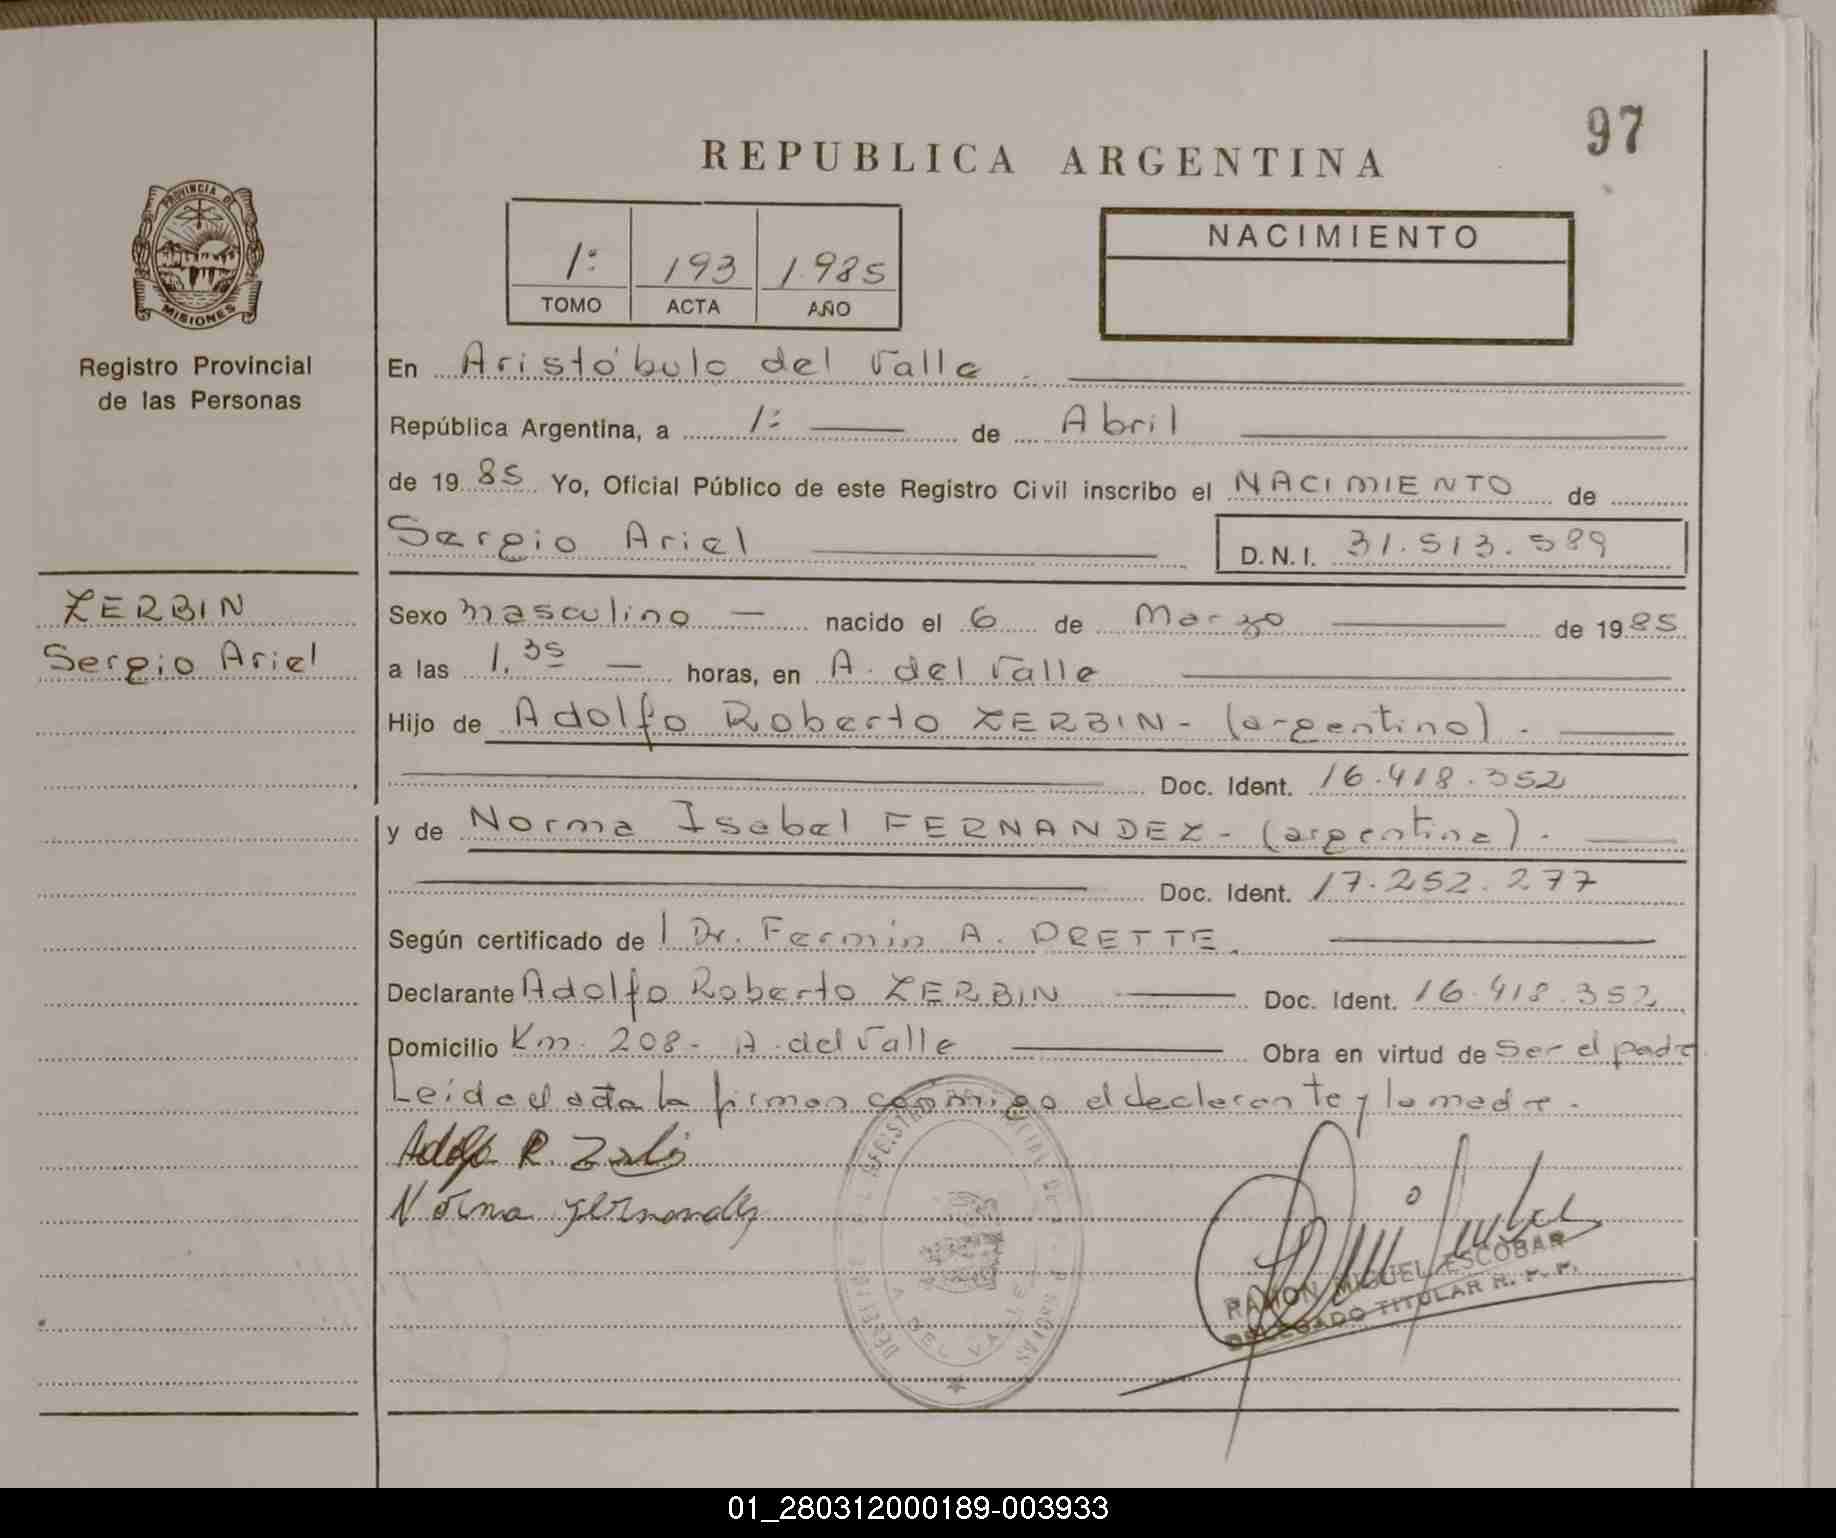 97
REPUBLICA ARGENTINA
PROVINCIA DE
MISIONES
Registro Provincial
de las Personas
1º 193 1.985
TOMO ACTA AÑO
NACIMIENTO
En Aristóbulo del Valle.
República Argentina, a 1º de Abril
de 1985 Yo, Oficial Público de este Registro Civil inscribo el NACIMIENTO de
Sergio Ariel D.N.I. 31.513.589
ZERBIN
Sergio Ariel
Sexo masculino nacido el 6 de Marzo de 1985
a las 1.35 horas, en A. del Valle
Hijo de Adolfo Roberto ZERBIN - (argentino).
Doc. Ident. 16.418.352
y de Norma Isabel FERNANDEZ - (argentina).
Doc. Ident. 17.252.277
Según certificado de Dr. Fermín A. ORETTE.
Declarante Adolfo Roberto ZERBIN Doc. Ident. 16.418.352
Domicilio Km. 208 - A. del Valle Obra en virtud de Ser el padre
Leída el acta la firman conmigo el declarante y la madre.
Adolfo R. Zerbin
Norma Fernandez
A. DEL VALLE
RAMON MIGUEL ESCOBAR
DELEGADO TITULAR R. P. P.
01_280312000189-003933